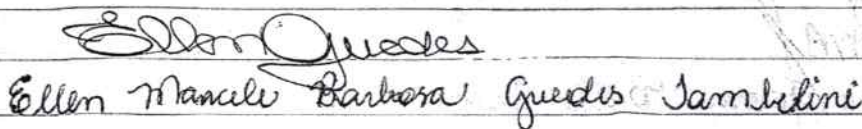 Ellen Guedes
Ellen Marcele Barbosa Guedes Tambelini